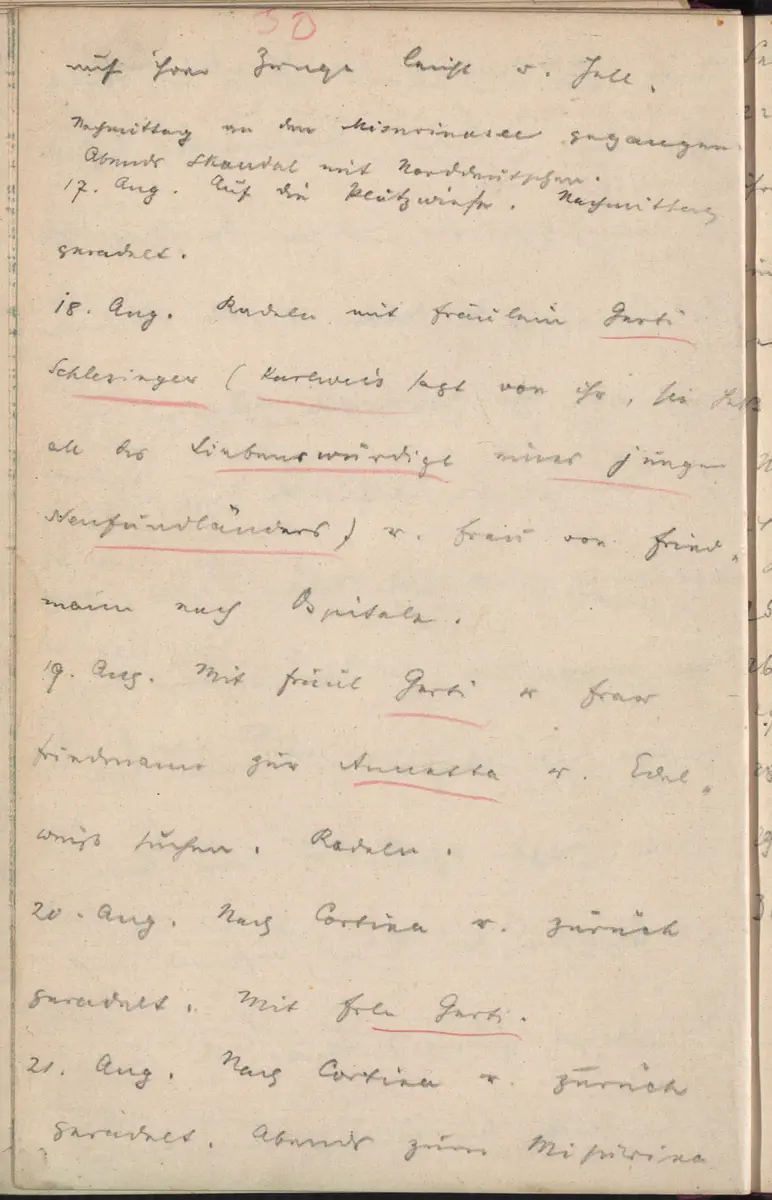 30
auf ihrer Zunge leicht u. hell.
Nachmittag an den Misurinasee gegangen.
Abends Skandal mit Norddeutschen.
17. Aug. Auf die Plätzwiese. Nachmittag
geradelt.
18. Aug. Radeln mit Fräulein Gerti
Schlesinger (Karlweis sagt von ihr, sie
all das Liebenswürdige eines jungen
Neufundländers) u. Frau von Fried„
mann nach Ospitale.
19. Aug. Mit Fräul Gerti u Frau
Friedmann zur u. Edel„
weiß suchen. Radeln.
20. Aug. Nach Cortina u. zurück
geradelt. Mit Frln Gerti.
21. Aug. Nach Cortina u. zurück
geradelt. Abends zum Misurina